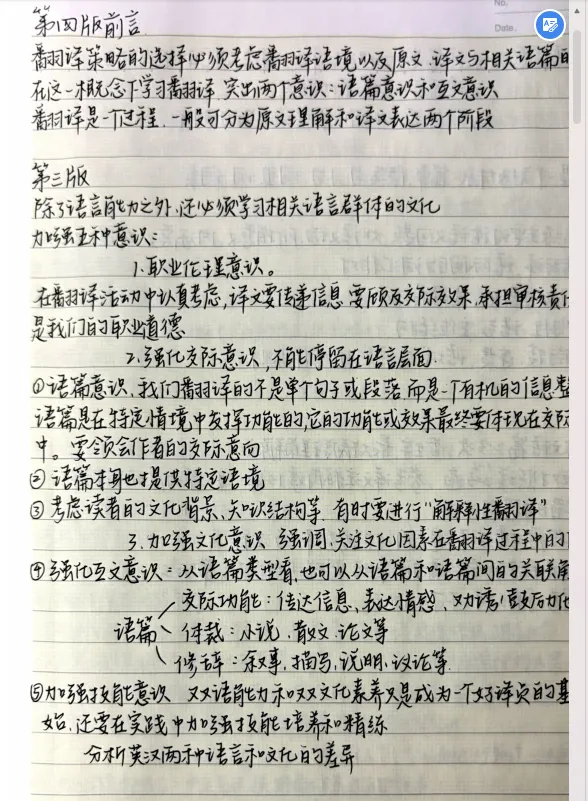 No.
Date.
第四版前言
翻译策略的选择必须考虑翻译语境以及原文、译文与相关语篇的
在这一概念下学习翻译,突出两个意识:语篇意识和互文意识
翻译是一个过程,一般可分为原文理解和译文表达两个阶段
第三版
除了语言能力之外,还必须学习相关语言群体的文化
加强五种意识:
1.职业伦理意识。
在翻译活动中认真考虑,译文要传递信息,要顾及交际效果,承担审核责任
是我们的职业道德
2.强化交际意识,不能停留在语言层面
①语篇意识,我们翻译的不是单个句子或段落,而是一个有机的信息整
语篇是在特定情境中发挥功能的,它的功能或效果最终要体现在交际
中。要领会作者的交际意向
②语篇本身也提供特定语境
③考虑读者的文化背景、知识结构等,有时要进行“解释性翻译”
3.加强文化意识,强调、关注文化因素在翻译过程中的
④强化互文意识:从语篇类型看,也可以从语篇和语篇间的关联角
交际功能:传达信息、表达情感、劝诱/鼓励他
语篇 体裁:小说、散文、论文等
修辞:叙事、描写、说明、议论等.
⑤加强技能意识 双语能力和双文化素养只是成为一个好译员的基
始,还要在实践中加强技能培养和精练
分析英汉两种语言和文化的差异